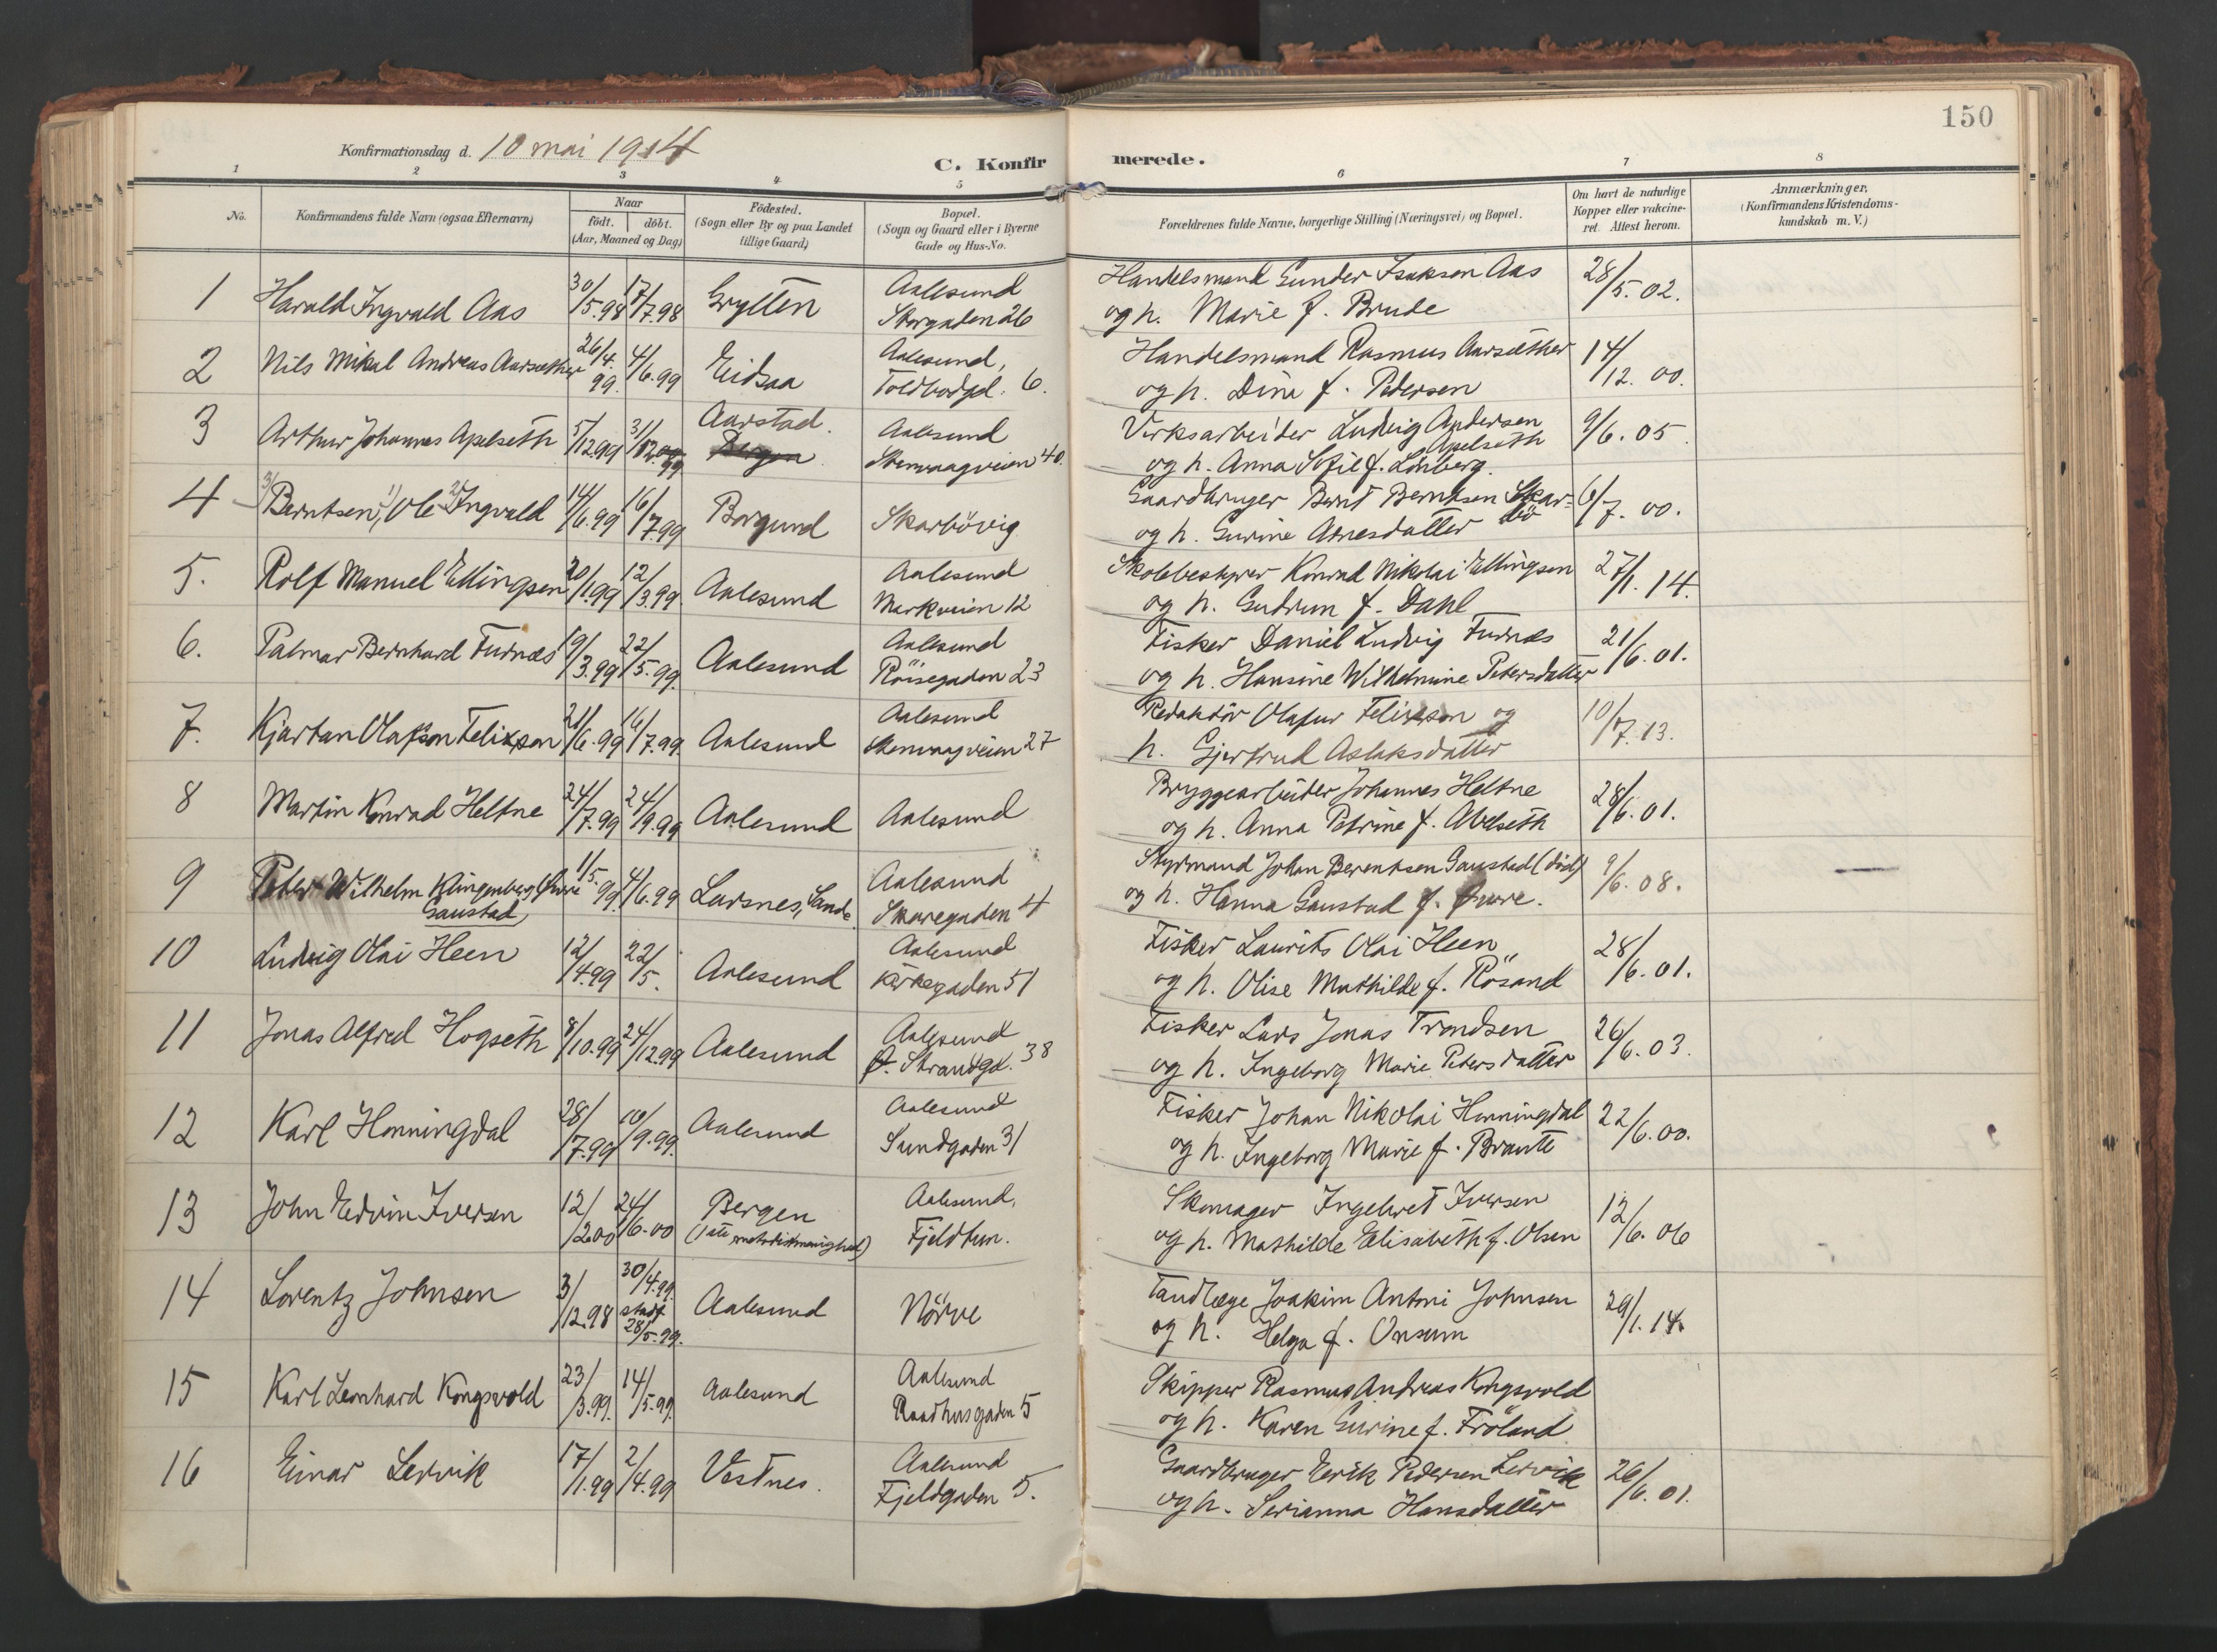 150
Konfirmationsdag d. 10 mai 1914
C. Konfirmerede.
1 2 3 4 5 6 7 8
No.
Konfirmandens fulde Navn (ogsaa Efternavn)
Naar
födt. döbt.
(Aar, Maaned og Dag)
Födested.
(Sogn eller By og paa Landet
tillige Gaard)
Bopæl.
(Sogn og Gaard eller i Byerne
Gade og Hus-No.
Forældrenes fulde Navne, borgerlige Stilling (Næringsvei) og Bopæl.
Om havt de naturlige
Kopper eller vakcine-
ret. Attest herom.
Anmærkninger,
(Konfirmandens Kristendoms-
kundskab m. V.)
1 Harald Ingvald Aas 30/5.98 17/7.98 Grytten Aalesund
Storgaden 26
Handelsmand Gunder Isaksen Aas
og h. Marie f. Brude
28/5.02.
2 Nils Mikal Andreas Aarsæther 26/4.99. 4/6.99 Eidsaa Aalesund,
Toldbodgd. 6.
Handelsmand Rasmus Aarsæther
og h. Dina f. Pedersen
14/12.00.
3 Arthur Johannes Apelseth 5/12.99 31/12.99 Aarstad.
Bergen
Aalesund
Stenvaagveien 40
Verksarbeider Ludvig Andersen
Apelseth
og h. Anna Sofie f. Lönberg.
9/6.05.
4 3) Berntsen, 1) Ole 2) Ingvald 14/6.99 16/7.99 Borgund Skarbövig
Gaardbruger Bernt Berntsen Skar-
bö
og h. Gurine Arnesdatter
6/7.00.
5. Rolf Manuel Ellingsen 20/1.99 12/3.99 Aalesund Aalesund
Markveien 12
Skolebestyrer Konrad Nikolai Ellingsen
og h. Gudrun f. Dahl
27/1.14.
6. Palmar Bernhard Furnæs 19/3.99 22/5.99. Aalesund Aalesund
Röisegaden 23
Fisker Daniel Ludvig Furnæs
og h. Hansine Wilhelmine Petersdatter
21/6.01.
7. Kjartan Olafson Felixson 21/6.99 16/7.99. Aalesund Aalesund
Stenvaagveien 27
Redaktör Olafur Felixson og
h. Gjertrud Aslaksdatter
10/7.13.
8 Martin Konrad Heltne 24/7.99 24/9.99 Aalesund Aalesund
Bryggearbeider Johannes Heltne
og h. Anna Petrine f. Abelseth
28/6.01.
9 Peter Wilhelm Klingenberg Øwre
Gaustad
1/5.99. 4/6.99 Larsnes, Sande Aalesund
Skaregaden 4
Styrmand Johan Berentsen Gaustad (död)
og h. Hanna Gaustad f. Øwre.
9/6.08. —
10 Ludvig Olai Heen 12/4.99 22/5. Aalesund Aalesund
Kirkegaden 51
Fisker Laurits Olai Heen
og h. Olise Mathilde f. Rösand
28/6.01.
11 Jonas Alfred Hogseth 8/10.99 24/12.99 Aalesund Aalesund
Ø. Strandgd. 38
Fisker Lars Jonas Trondsen
og h. Ingeborg Marie Petersdatter
26/6.03.
12 Karl Honningdal 28/7.99 10/9.99. Aalesund Aalesund
Sundgaden 31
Fisker Johan Nikolai Honningdal
og h. Ingeborg Marie f. Brautt
22/6.00.
13 John Edvin Iversen 12/2.00 24/6.00 Bergen
(1ste metodistmenighed)
Aalesund,
Fjeldtun.
Skomager Ingebret Iversen
og h. Mathilde Elisabeth f. Olsen
12/6.06
14 Lorentz Johnsen 3/12.98 30/4.99.
stadf.
28/5.99.
Aalesund Nörve
Tandlæge Joakim Antoni Johnsen
og h. Helga f. Onsum
29/1.14.
15 Karl Leonhard Kongsvold 23/3.99. 14/5.99. Aalesund Aalesund
Raadhusgaden 5
Skipper Rasmus Andreas Kongsvold
og h. Karen Gurine f. Fröland
16 Einar Lervik 17/1.99 2/4.99 Vestnes. Aalesund
Fjeldgaden 5.
Gaardbruger Eerik Pedersen Lervik
og h. Serianna Hansdatter
26/6.01.